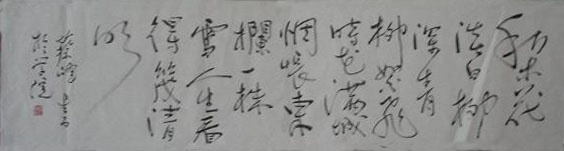 梨花
淡白柳
深青
柳絮飛
時花滿城
惆悵東
欄一株
雪人生看
得幾清
明
於学院